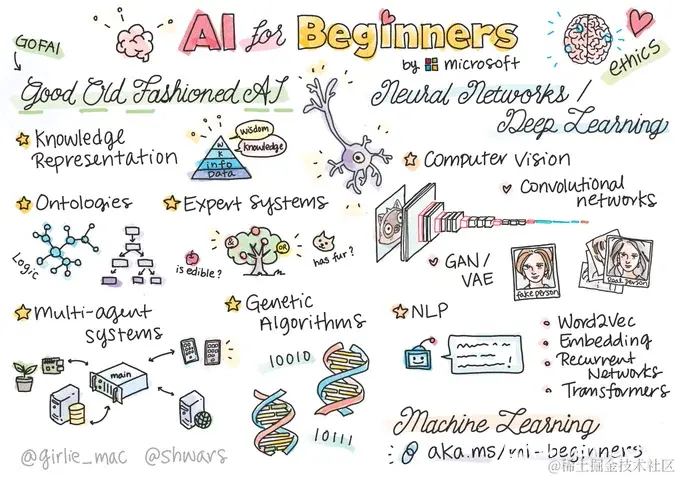 AI for Beginners
by microsoft
GOFAI
ethics
Good Old Fashioned AI
Knowledge
Representation
wisdom
knowledge
W
K
info
Data
Ontologies
Logic
Expert Systems
is edible?
&
OR
has fur?
Multi-agent
systems
main
Genetic
Algorithms
10010
10111
Neural Networks /
Deep Learning
Computer Vision
Convolutional
networks
GAN/
VAE
fake person
Real person
NLP
Word2Vec
Embedding
Recurrent
Networks
Transformers
Machine Learning
aka.ms/ml-beginners
@girlie_mac @shwars
@稀土掘金技术社区